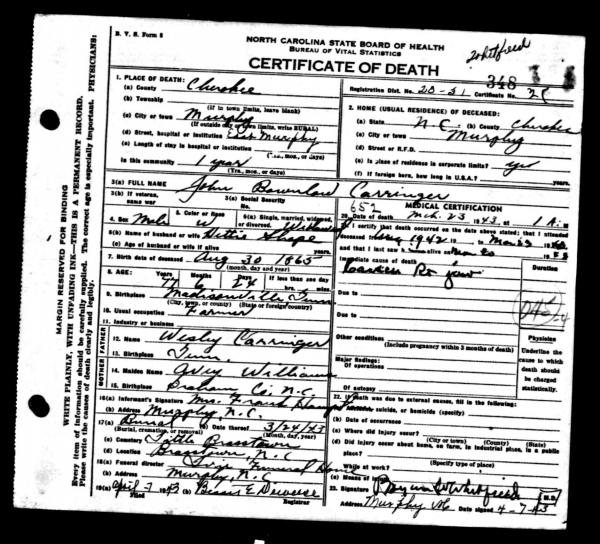 B. V. S. Form 8
NORTH CAROLINA STATE BOARD OF HEALTH
BUREAU OF VITAL STATISTICS
CERTIFICATE OF DEATH
Whitfield
348
Registration Dist. No. 20-51 Certificate No.
MARGIN RESERVED FOR BINDING
WRITE PLAINLY, WITH UNFADING INK—THIS IS A PERMANENT RECORD.
Every item of information should be carefully supplied. The correct age is especially important. PHYSICIANS:
Please write the causes of death clearly and legibly.
1. PLACE OF DEATH:
(a) County Cherokee
(b) Township
(If in town limits, leave blank)
(c) City or town Murphy
(If outside city or town limits, write RURAL)
(d) Street, hospital or institution East Murphy
(e) Length of stay in hospital or institution
(Yrs., mos., or days)
In this community 1 year
(Yrs., mos., or days)
2. HOME (USUAL RESIDENCE) OF DECEASED:
(a) State N.C. (b) County Cherokee
(c) City or town Murphy
(d) Street or R.F.D.
(e) Is place of residence in corporate limits? yes
(f) If foreign born, how long in U.S.A.? years.
3(a) FULL NAME John Carringer
3(b) If veteran, name war
3(c) Social Security No.
4. Sex Male
5. Color or Race W
6(a) Single, married, widowed, or divorced
6(b) Name of husband or wife
6(c) Age of husband or wife if alive
7. Birth date of deceased Aug 30 1865
(month, day and year)
8. AGE: Years 77 Months 6 Days 24 If less than one day hrs. min.
9. Birthplace Madisonville Tenn
(City, town, or county) (State or foreign country)
10. Usual occupation Farmer
11. Industry or business
FATHER
12. Name Wesly Carringer
13. Birthplace Tenn.
MOTHER
14. Maiden Name Williams
15. Birthplace Graham Co, N.C.
16(a) Informant's Signature Mrs. Frank
(b) Address Murphy, N.C.
17(a) Burial (b) Date thereof 3/24/43
(Burial, cremation, or removal) (Month, day, year)
(c) Cemetery Little Brasstown
(d) Location Brasstown, N.C.
18(a) Funeral director Funeral Home
(b) Address Murphy, N.C.
19(a) April-7 1943 (b) Bessie E Deweese
Filed Registrar
652
MEDICAL CERTIFICATION
20. Date of death Mch. 23 1943, at 1 A.M.
21. I certify that death occurred on the date above stated; that I attended
deceased from 1942 to
and that I last saw alive on
Immediate cause of death
Duration
Due to
Due to
Other conditions
(Include pregnancy within 3 months of death)
Major findings:
Of operations
Of autopsy
Physician
Underline the cause to which death should be charged statistically.
22. If death was due to external causes, fill in the following:
(a) Accident, suicide, or homicide (specify)
(b) Date of occurrence
(c) Where did injury occur?
(City or town) (County) (State)
(d) Did injury occur about home, on farm, in industrial place, in a public
place?
(Specify type of place)
While at work?
(e) Means of injury
23. Signature Whitfield M.D.
Address Murphy NC Date signed 4-7-43